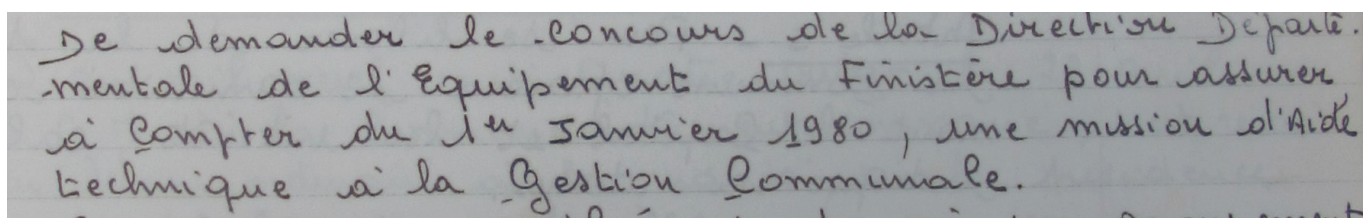 De demander le concours de la Direction Départe-
mentale de l'Equipement du Finistère pour assurer
à Compter du 1er Janvier 1980, une mission d'Aide
technique à la Gestion Communale.